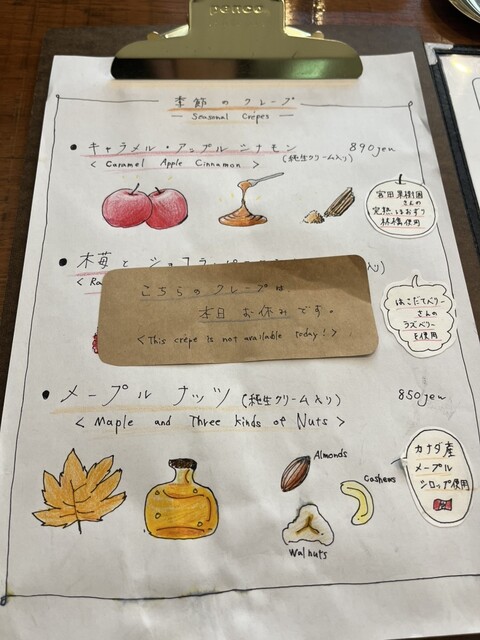 penco
季節のクレープ
Seasonal Crêpes
• キャラメル・アップルシナモン 890yen
< Caramel Apple Cinnamon > (純生クリーム入り)
宮田果樹園
さんの
完熟ほおずり
林檎使用
• 木苺と ショコラ
はこだてベリー
さんの
ラズベリー
を使用
こちらのクレープは、
本日 お休みです。
<This crêpe is not available today!>
• メープル ナッツ (純生クリーム入り) 850yen
< Maple and Three kinds of Nuts >
カナダ産
メープル
シロップ使用
Almonds
Cashews
Walnuts